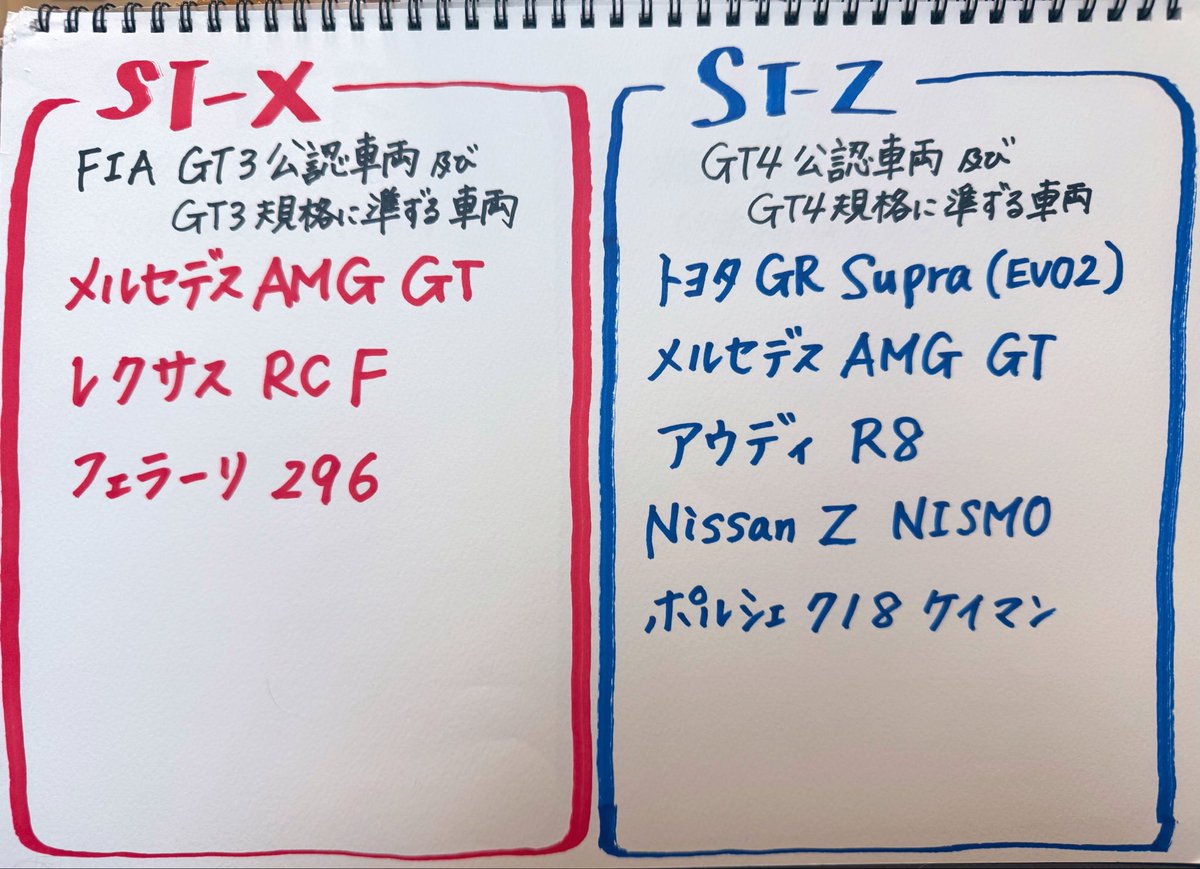 ST-X
FIA GT3公認車両及び
GT3規格に準ずる車両
メルセデスAMG GT
レクサス RC F
フェラーリ 296
ST-Z
GT4公認車両及び
GT4規格に準ずる車両
トヨタ GR Supra(EVO2)
メルセデス AMG GT
アウディ R8
Nissan Z NISMO
ポルシェ 718 ケイマン